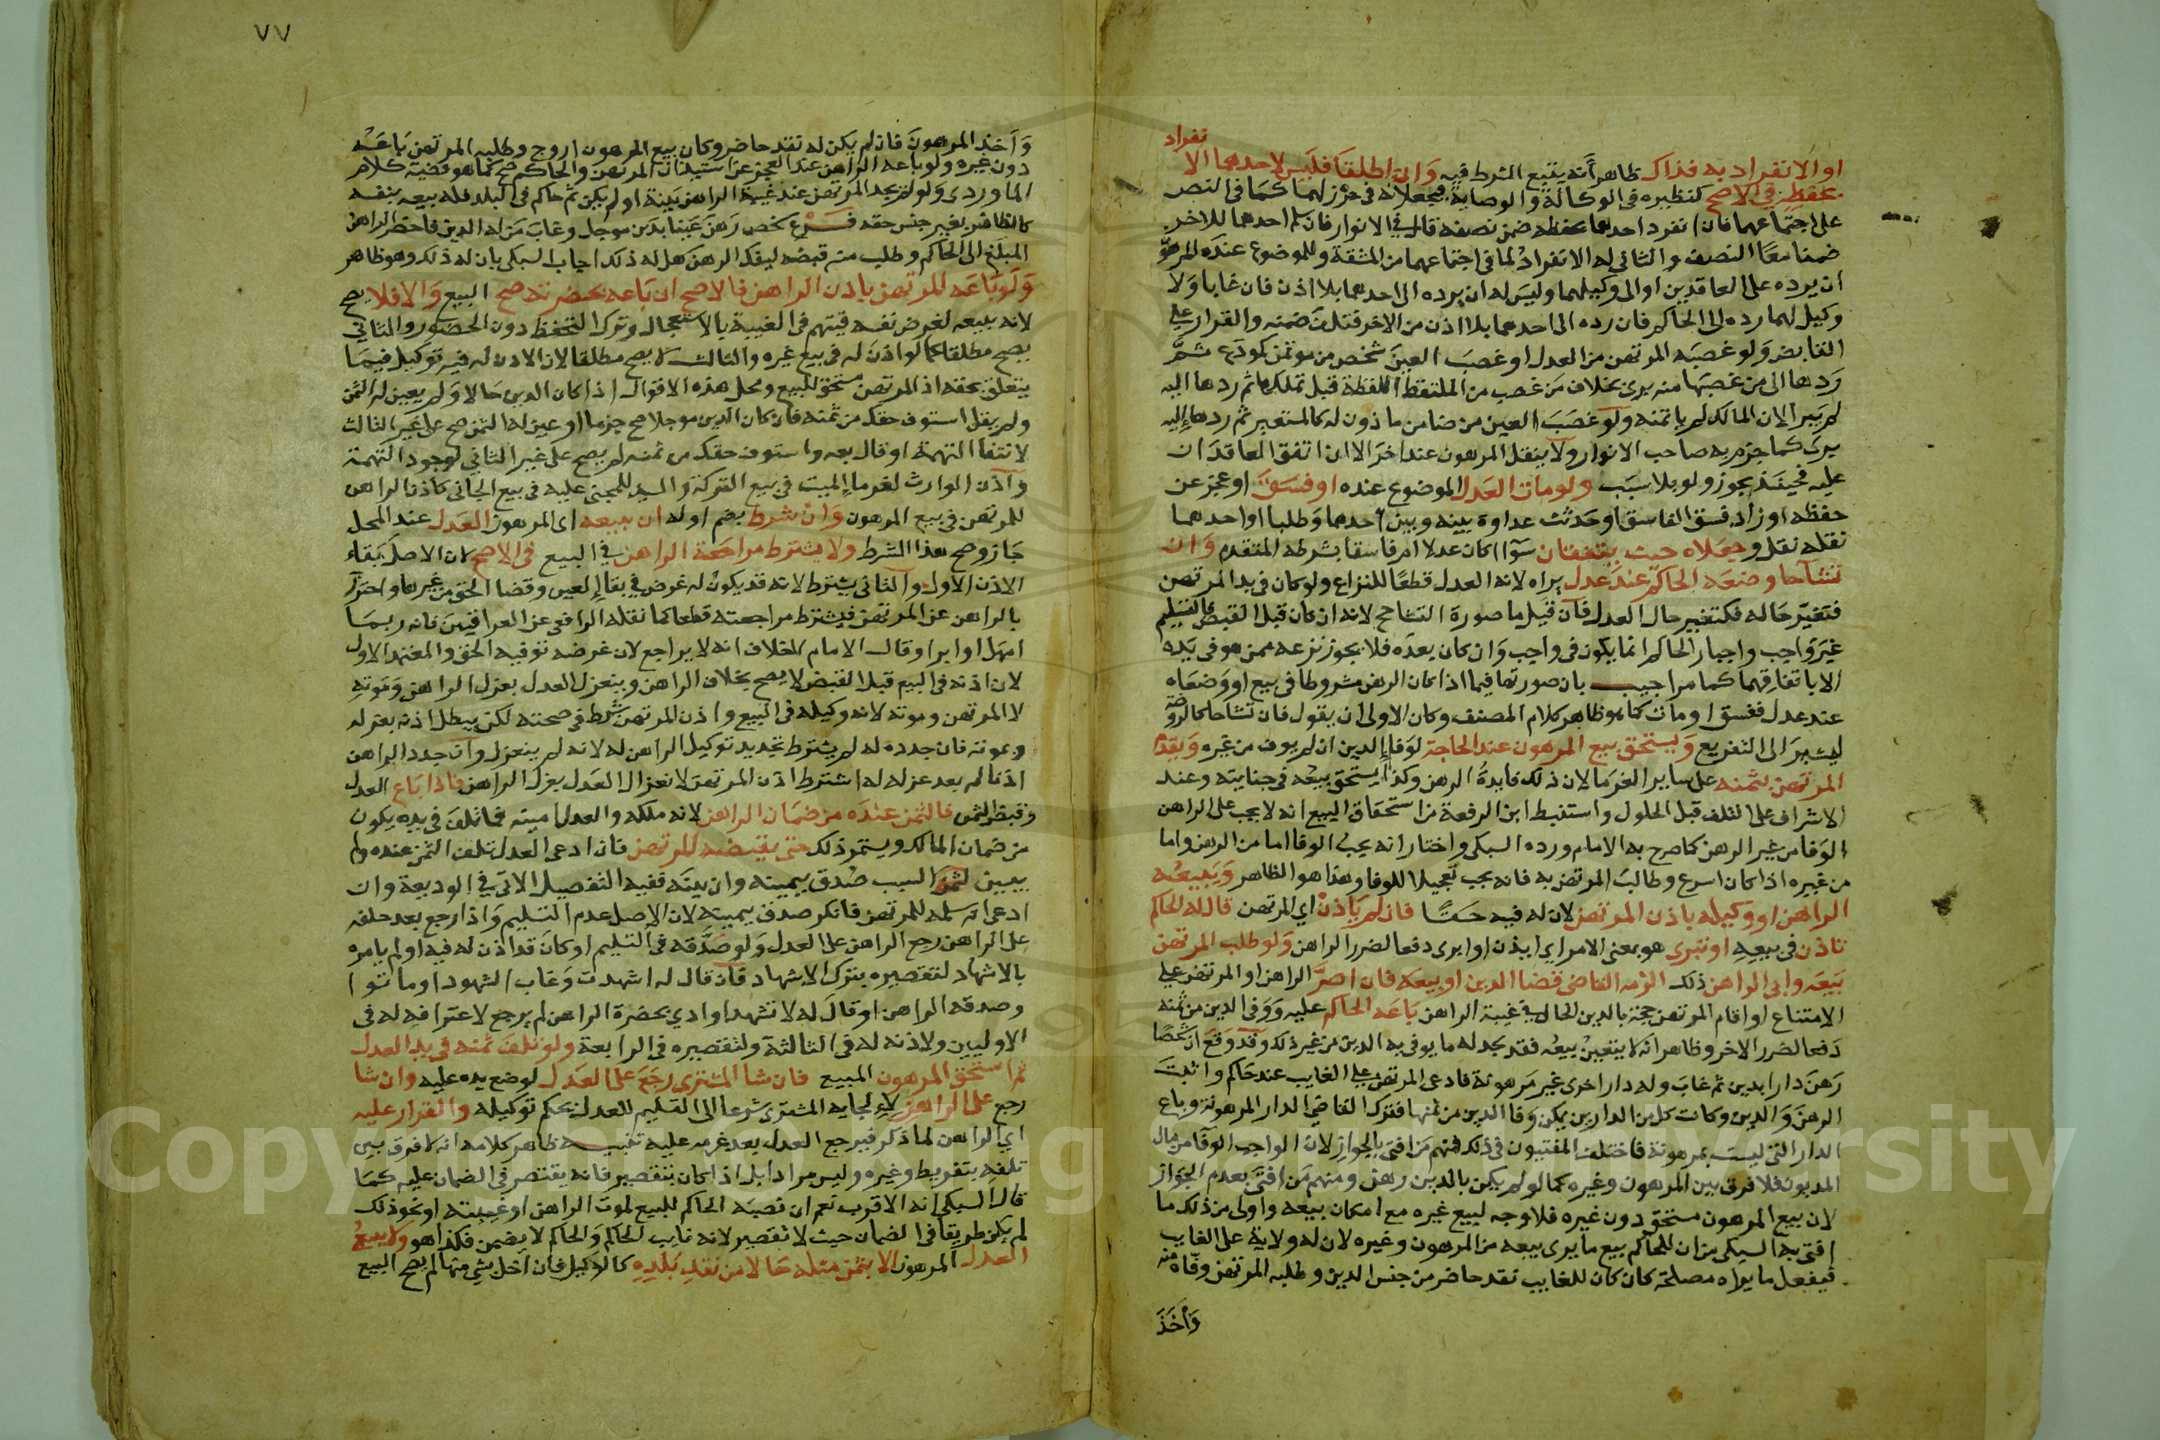 او الانفراد به فذاك ظاهر أنه يتبع الشرط فيه وان اطلقا فليس لاحدهما الانفراد
بحفظه في الاصح كنظيره في الوكالة والوصاية فيجعلانه في حرز لهما كما في النص
على اجتماعهما فان انفرد احدهما بحفظه ضمن نصفه قال في الانوار فان سلم احدهما للاخر
ضمنا معا النصف والثاني له الانفراد لما في اجتماعهما من المشقة وللموضوع عنده المرهون
ان يرده على العاقدين او الى وكيلهما وليس له ان يرده الى احدهما بلا اذن فان غابا ولا
وكيل لهما رده الى الحاكم فان رده الى احدهما بلا اذن من الاخر فتلف ضمنه والقرار على
القابض ولو غصبه المرتهن من العدل او غصب العين شخص من موتمن كمودع ثم
ردها الى من غصبها منه بري بخلاف من غصب من الملتقط اللقطة قبل تملكها ثم ردها اليه
لم يبر الان المالك لم ياتمنه ولو غصب العين من ضامن ماذون له كالمستعير ثم ردها اليه
بري كما جزم به صاحب الانوار ولا ينقل المرهون عند اخر الا ان اتفق العاقدان
عليه فحينيذ يجوز ولو بلا سبب ولو مات العدل الموضوع عنده او فسق او عجز عن
حفظه او زاد فسق الفاسق او حدثت عداوة بينه وبين احدهما وطلبا او احدهما
نقله نقل وجعلاه حيث يتفقان سوا اكان عدلا ام فاسقا بشرطه المتقدم وان
تشاحا وضعه الحاكم عند عدل يراه لانه العدل قطعا للنزاع ولو كان في يد المرتهن
فتغير حاله فكتغير حال العدل فان قيل ما صورة التشاحح لانه ان كان قبل القبض فالتسليم
غير واجب واجبار الحاكم انما يكون في واجب وان كان بعده فلا يجوز نزعه ممن هو في يده
الا باتفاقهما كما مر اجيب بان صورتها فيما اذا كان الرهن مشروطا في بيع او وضعاه
عند عدل ففسق او مات كما هو ظاهر كلام المصنف وكان الاولى ان يقول فان تشاحا كالروضة
ليشير الى التفريع ويستحق بيع المرهون عند الحاجة لوفاء الدين ان لم يوف من غيره ويقدم
المرتهن بثمنه على ساير الغرما لان ذلك فايدة الرهن وكذا يستحق بيعه في جنايته وعند
الاشراف على التلف قبل الحلول واستنبط ابن الرفعة من استحقاق البيع انه لا يجب على الراهن
الوفا من غير الرهن كما صرح به الامام ورده السبكي واختار انه يجب الوفا اما من الرهن واما
من غيره اذا كان اسرع وطالب المرتهن به فانه يجب تعجيلا للوفا وهذا هو الظاهر ويبيعه
الراهن او وكيله باذن المرتهن لان له فيه حقا فان لم ياذن اي المرتهن قال له الحاكم
تاذن في بيعه او تبري هو بمعنى الامر اي ايذن او ابري دفعا لضرر الراهن ولو طلب المرتهن
بيعه وابى الراهن ذلك الزمه القاضي قضا الدين او بيعه فان اصر الراهن او المرتهن على
الامتناع او اقام المرتهن حجة بالدين الحال في غيبة الراهن باعه الحاكم عليه ووفى الدين من ثمنه
دفعا لضرر الاخر وظاهر انه لا يتعين بيعه فقد يجد له ما يوفي به الدين من غير ذلك وقد وقع ان شخصا
رهن دارا بدين ثم غاب وله دار اخرى غير مرهونة فادعى المرتهن على الغايب عند حاكم واثبت
الرهن والدين وكانت كل من الدارين يمكن وفا الدين من ثمنها فترك القاضي الدار المرهونة وباع
الدار التي ليست بمرهونة فاختلف المفتيون في ذلك فمنهم من افتى بالجواز لان الواجب الوفا من مال
المديون فلا فرق بين المرهون وغيره كما لو لم يكن بالدين رهن ومنهم من افتى بعدم الجواز
لان بيع المرهون مستحق دون غيره فلا وجه لبيع غيره مع امكان بيعه واولى من ذلك ما
افتى به السبكي من ان للحاكم بيع ما يرى بيعه من المرهون وغيره لان له ولاية على الغايب
فيفعل ما يراه مصلحة كان كان للغايب نقد حاضر من جنس الدين وطلبه المرتهن وفاه منه
واخذ
٧٧
واخذ المرهون فان لم يكن له نقد حاضر وكان بيع المرهون اروج وطلبه المرتهن باعه
دون غيره ولو باعه الراهن عند العجز عن استيذان المرتهن والحاكم صح كما هو قضية كلام
الماوردي ولو لم يجد المرتهن عند غيبة الراهن بينة او لم يكن ثم حاكم في البلد فله بيعه بنفسه
كالظافر بغير جنس حقه فرع شخص رهن عينا بدين موجل وغاب من له الدين فاحضر الراهن
المبلغ الى الحاكم وطلب منه قبضه ليفك الرهن هل له ذلك اجاب السبكي بان له ذلك وهو ظاهر
ولو باعه المرتهن باذن الراهن فالاصح ان باعه بحضرته صح البيع والا فلا يصح
لانه يبيعه لغرض نفسه فيتهم في الغيبة بالاستعجال وترك التحفظ دون الحضور والثاني
يصح مطلقا كما لو اذن له في بيع غيره والثالث لا يصح مطلقا لان الاذن له فيه توكيل فيما
يتعلق بحقه اذ المرتهن مستحق للبيع ومحل هذه الاقوال اذا كان الدين حالا ولم يعين له الثمن
ولم يقل استوف حقك من ثمنه فان كان الدين موجلا صح جزما او عين له الثمن صح على غير الثالث
لانتفا التهمة او قال بعه واستوف حقك من ثمنه لم يصح على غير الثاني لوجود التهمة
واذن الوارث لغرماء الميت في بيع التركة والسيد للمجني عليه في بيع الجاني كاذن الراهن
للمرتهن في بيع المرهون وان شرط بضم اوله ان يبيعه اي المرهون العدل عند المحل
جاز وصح هذا الشرط ولا يشترط مراجعة الراهن في البيع في الاصح لان الاصل بقاء
الاذن الاول والثاني يشترط لانه قد يكون له غرض في بقاء العين وقضا الحق من غيرها واحترز
بالراهن عن المرتهن فيشترط مراجعته قطعا كما نقله الرافعي عن العراقيين فانه ربما
امهل او ابرا وقال الامام لا خلاف انه لا يراجع لان غرضه توفية الحق والمعتمد الاول
لان اذنه في البيع قبل القبض لا يصح بخلاف الراهن وينعزل العدل بعزل الراهن وموته
لا المرتهن وموته لانه وكيله في البيع واذن المرتهن شرط في صحته لكن يبطل اذنه بعزله
وبموته فان جدده له لم يشترط تجديد توكيل الراهن له لانه لم ينعزل وان جدد الراهن
اذنا له بعد عزله له اشترط اذن المرتهن لانعزال العدل بعزل الراهن فاذا باع العدل
وقبض الثمن فالثمن عنده من ضمان الراهن لانه ملكه والعدل امينه فما تلف في يده يكون
من ضمان المالك ويستمر ذلك حتى يقبضه المرتهن فان ادعى العدل تلف الثمن عنده ولم
يبين السبب صدق بيمينه وان بينه ففيه التفصيل الاتي في الوديعة وان
ادعى انه سلمه للمرتهن فانكر صدق بيمينه لان الاصل عدم التسليم واذا رجع بعد حلفه
على الراهن رجع الراهن على العدل ولو صدقه في التسليم او كان قد اذن له فيه او لم يامره
بالاشهاد لتقصيره بترك الاشهاد فان قال له اشهدت وغاب الشهود او ماتوا
وصدقه الراهن او قال له لا تشهد او ادى بحضرة الراهن لم يرجع لاعترافه له في
الاوليين ولاذنه له في الثالثة ولتقصيره في الرابعة ولو تلف ثمنه في يد العدل
ثم استحق المرهون المبيع فان شا المشتري رجع على العدل لوضع يده عليه وان شا
رجع على الراهن لالجايه المشتري شرعا الى التسليم للعدل بحكم توكيله والقرار عليه
اي الراهن لما ذكر فيرجع العدل بعد غرمه عليه تنبيه ظاهر كلامه انه لا فرق بين
تلفه بتفريط وغيره وليس مرادا بل اذا كان بتقصير فانه يقتصر في الضمان عليه كما
قال السبكي انه الاقرب نعم ان نصبه الحاكم للبيع لموت الراهن او غيبته او نحو ذلك
لم يكن طريقا في الضمان حيث لا تقصير لانه نايب الحاكم والحاكم لا يضمن فكذا هو ولا يبيع
العدل المرهون الا بثمن مثله حالا من نقد بلده كالوكيل فان اخل بشي منها لم يصح البيع
Copyright © King Saud University